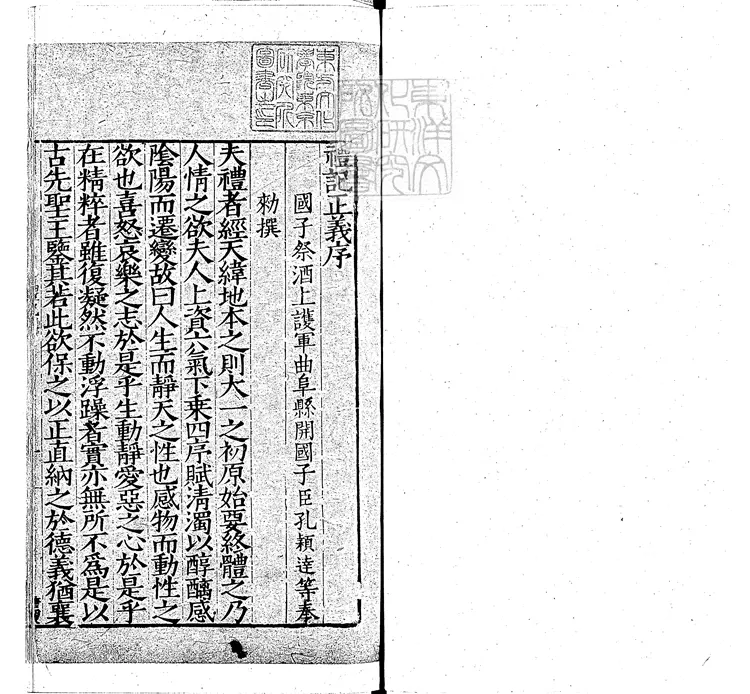 禮記正義序
國子祭酒上護軍曲阜縣開國子臣孔穎達等奉
勑撰
夫禮者經天緯地本之則大一之初原始要終體之乃
人情之欲夫人上資六氣下乘四序賦清濁以醇醨感
隂陽而遷變故曰人生而靜天之性也感物而動性之
欲也喜怒哀樂之志於是乎生動靜愛惡之心於是乎
在精粹者雖復凝然不動浮躁者實亦無所不為是以
古先聖王鑒其若此欲保之以正直納之於德義猶襄